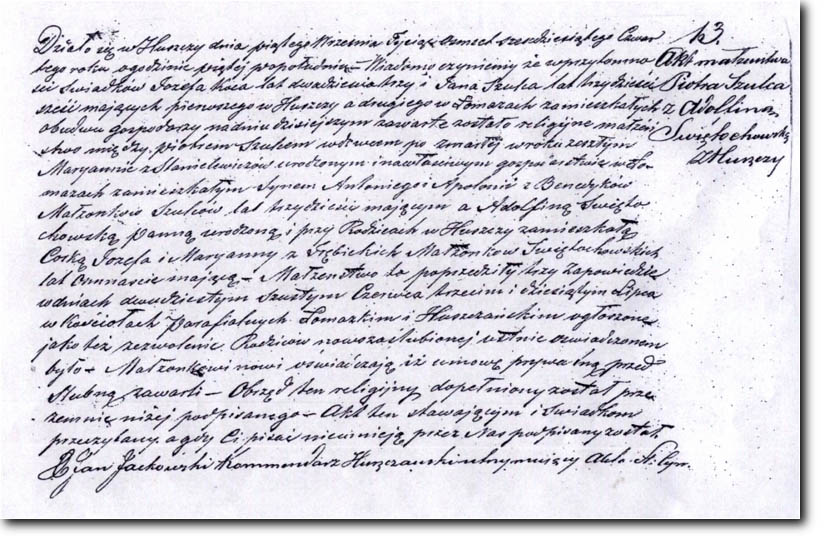 Działo się w Huszczy dnia piątego Września Tysiąc Osmset sześćdziesiątego Czwar
tego roku o godzinie piątej popołudniu – Wiadomo czynimy że w przytomno
ści Swiadków Jozefa Koca lat dwadzieścia trzy i Jana Szulca lat trzydzieści
sześć mających pierwszego w Huszczy a drugiego w Łomazach zamieszkałych
obudwu gospodarzy na dniu dzisiejszym zawarte zostało religijne małżeń
stwo między piotrem Szulcem wdowcem po zmarłej w roku zeszłym
Maryannie z Stanilewiczów urodzonym i na gospodarstwie w Ło-
mazach zamieszkałym Synem Antoniego i Apolonii z Benedyków
Małżonków Szulców lat trzydzieści mającym a Adolfiną Święto
chowską panną urodzoną i przy Rodzicach w Huszczy zamieszkałą
Corką Jozefa i Maryanny z Małżonków Swiętochowskich
lat Osmnascie mającą – Małżenstwo to poprzedziły trzy zapowiedzie
w dniach dwudziestym szostym Czerwca trzecim i dziesiątym Lipca
w Kościołach parafialnych Łomazkim i Huszczańskim ogłoszone
jako też zezwolenie Rodziców nowozaślubionej ustnie oswiadczonem
było – Małżonkowie nowi oświadczają iż umowę przywatną przed
Slubną zawarli – Obrzęd ten religijny dopełniony został prze
zemnie niżej podpisanego – Akt ten stawającym i Swiadkom
przeczytany, a gdy Ci pisać nieumieją przez Nas podpisany został
X Jan Jackowski Kommendarz Huszczanski utrzymujący Akta St. Cyw.
13.
Akt małżenstwa
Piotra Szulca
z Adolfiną
Swiętochowską
z Huszczy